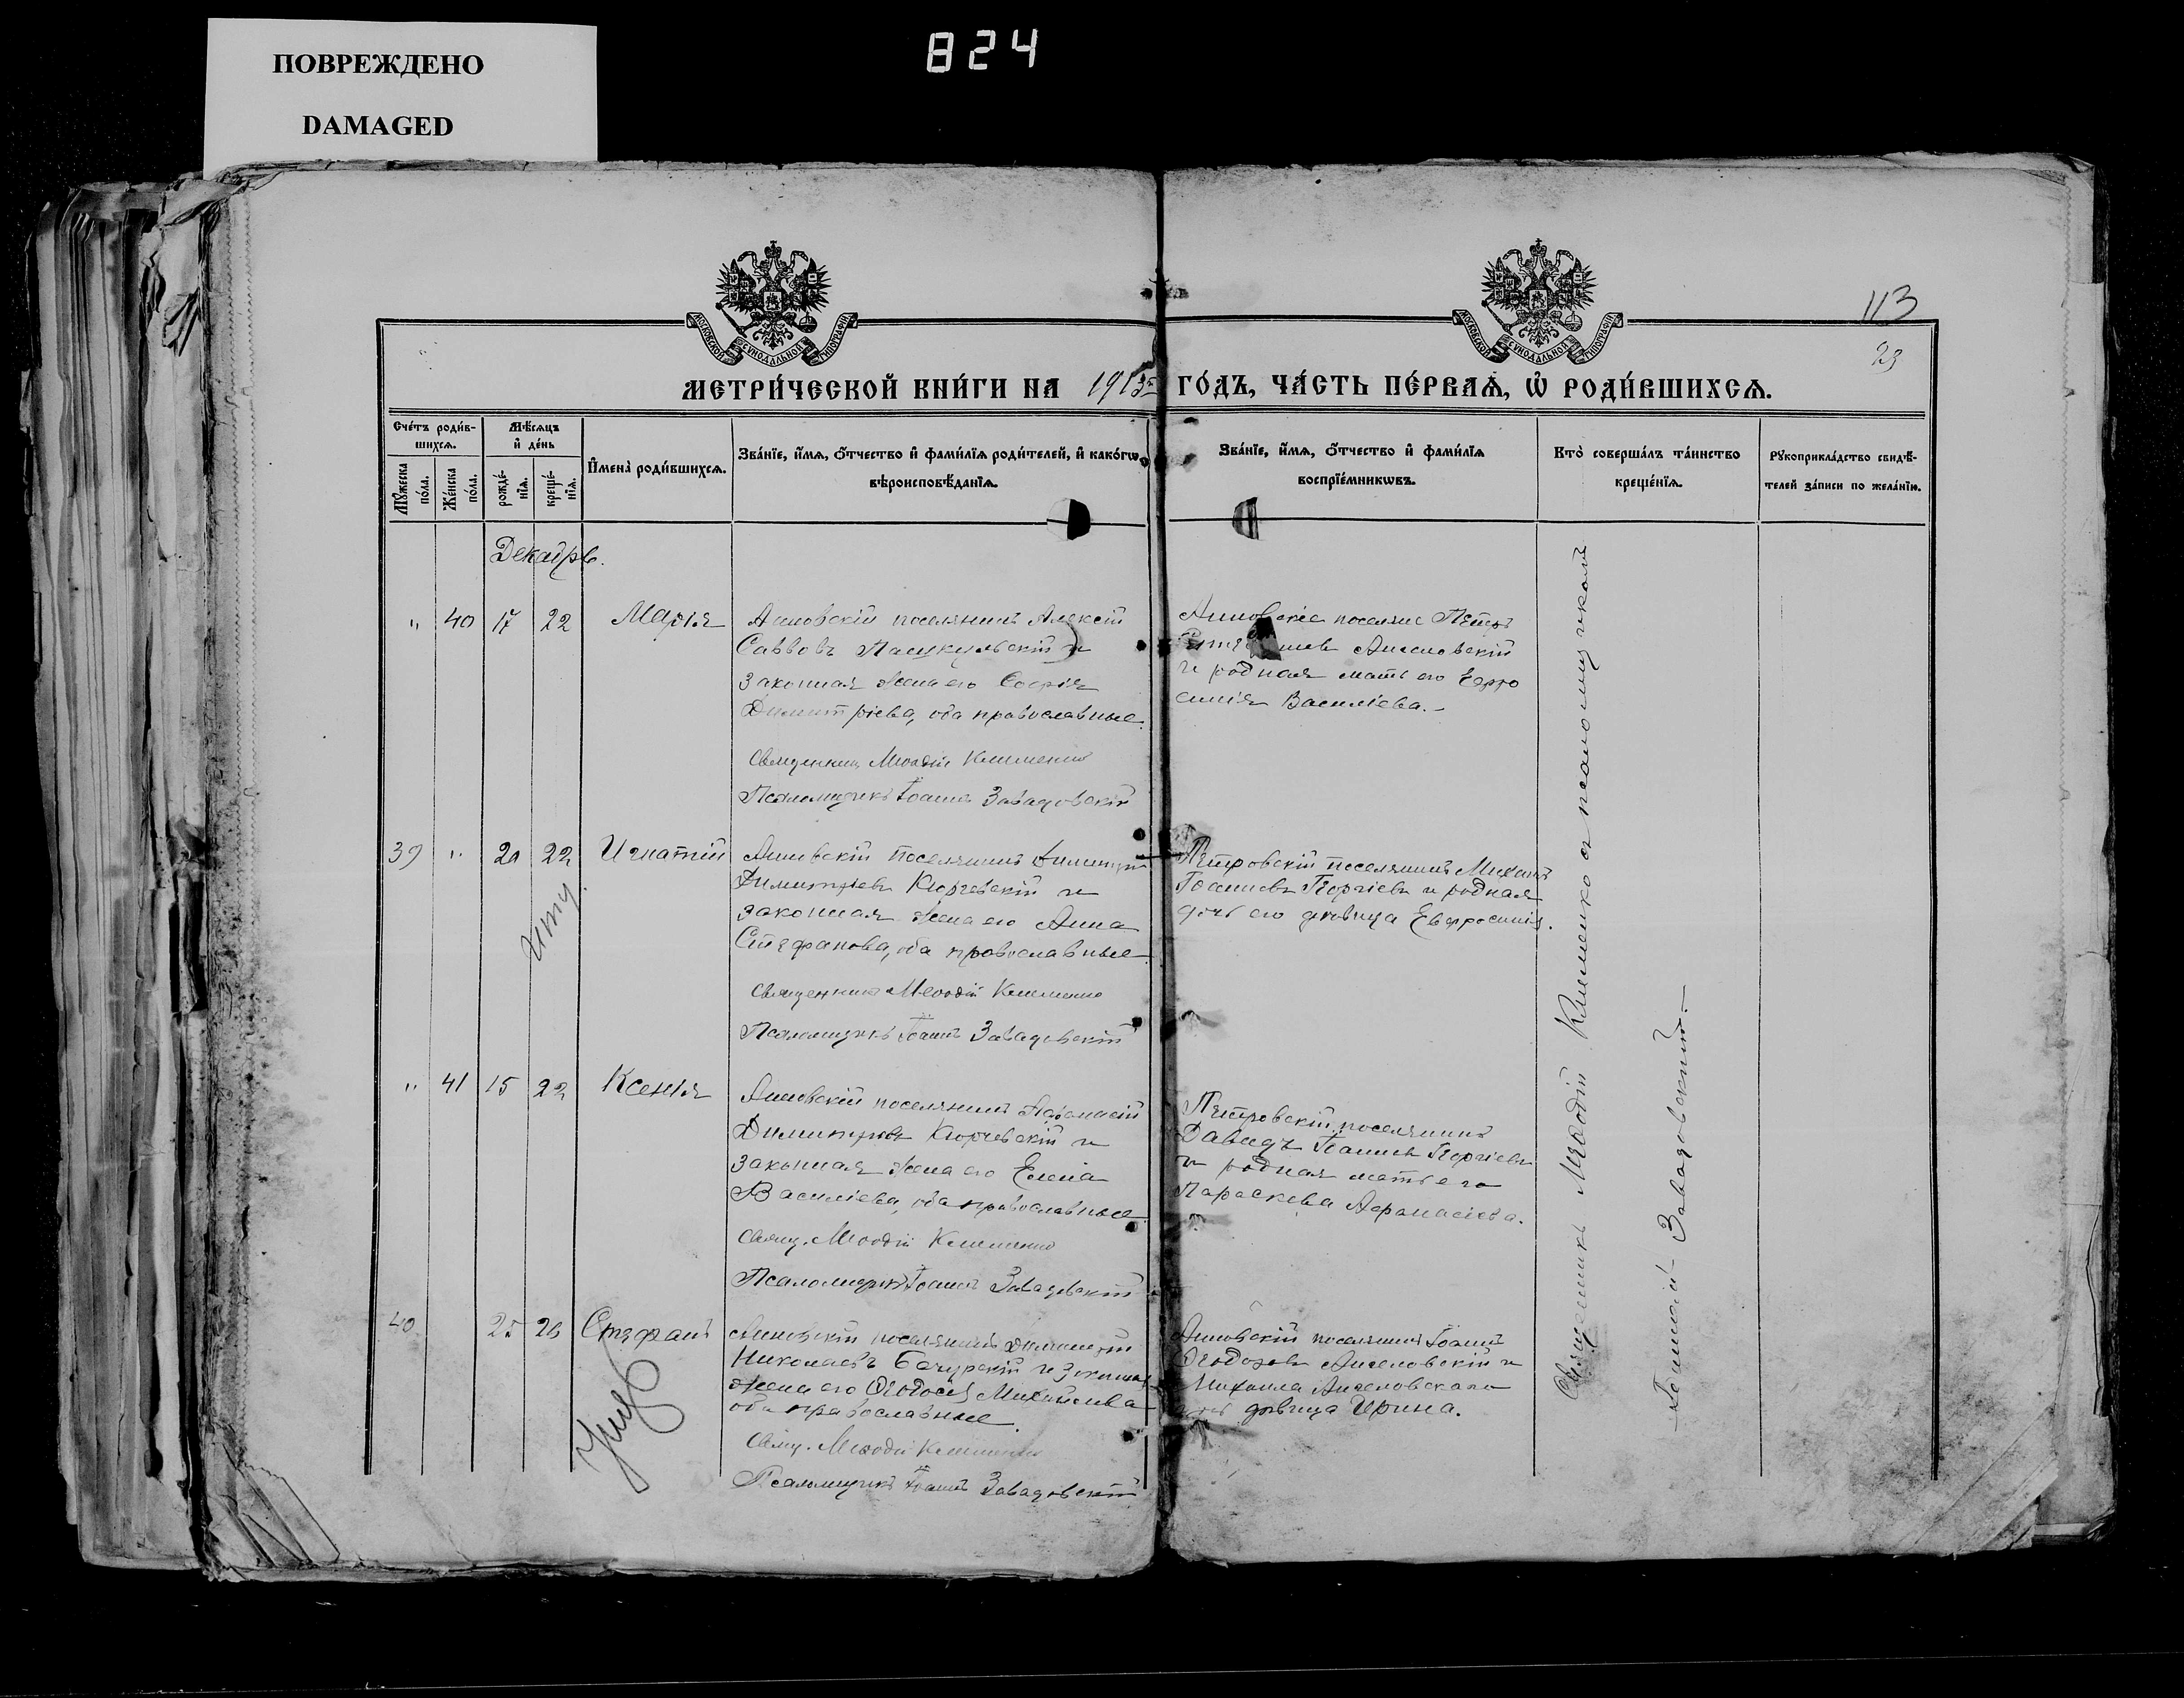 ПОВРЕЖДЕНО
DAMAGED
824
113
23
МОСКОВСКОЙ СѴНОДАЛЬНОЙ ТИПОГРАФІИ
МОСКОВСКОЙ СѴНОДАЛЬНОЙ ТИПОГРАФІИ
МЕТРИ́ЧЕСКОЙ КНИ́ГИ НА 1913 ГО́ДЪ, ЧА́СТЬ ПЕ́РВАѦ, Ѡ҆ РОДИ́ВШИХСѦ.
Сче́тъ роди́в-
шихсѧ.
Мѹ́жеска по́ла.
Же́нска по́ла.
Мѣ́сѧцъ
и҆ де́нь
рожде́-нїѧ.
креще́-нїѧ.
И҆мена̀ роди́вшихсѧ.
Зва́нїе, и҆́мѧ, ѻ҆́тчество и҆ фами́лїѧ роди́телей, и҆ како́гѡ
вѣроисповѣ́данїѧ.
Зва́нїе, и҆́мѧ, ѻ҆́тчество и҆ фами́лїѧ
воспрїе́мникѡвъ.
Кто̀ соверша́лъ та́инство
креще́нїѧ.
Рѹкоприкла́дство свидѣ́-
телей за́писи по жела́нїю.
Декабрь.
" 40 17 22 Марія
Анновскій поселянинъ Алексій
Саввовъ Пашкульскій и
законная жена его Софія
Димитріева, оба православные
Священникъ Меѳодій Клименко
Псаломщикъ Іоаннъ Завадовскій
поселяне Петръ
Ангеловскій
и родная мать его Евфро
синія Василіева.
39 " 20 22 Игнатій
Анновскій поселянинъ Димитрій
Димитріевъ Кюрчевскій и
законная жена его Анна
Стефанова, оба православные
Священникъ Меѳодій Клименко
Псаломщикъ Іоаннъ Завадовскій
Петровскій поселянинъ Михаилъ
Іоанновъ Георгіевъ и родная
дочь его дѣвица Евфросинія.
" 41 15 22 Ксенія
Анновскій поселянинъ Аѳанасій
Димитріевъ Кюрчевскій и
законная жена его Елена
Василіева, оба православные
Свящ. Меѳодій Клименко
Псаломщикъ Іоаннъ Завадовскій
Петровскій поселянинъ
Давидъ Іоанновъ Георгіевъ
и родная мать его
Параскева Аѳанасіева.
40 25 26 Стефанъ
Анновскій поселянинъ Димитрій
Николаевъ Бачурскій и законная
жена его Ѳеодосія Михайлова
оба православные.
Свящ. Меѳодій Клименко
Псаломщикъ Іоаннъ Завадовскій
Анновскій поселянинъ Іоаннъ
Ѳеодоровъ Ангеловскій и
Михаила Ангеловскаго
дочь дѣвица Ирина.
Священникъ Меѳодій Клименко съ псаломщикомъ
Іоанномъ Завадовскимъ.